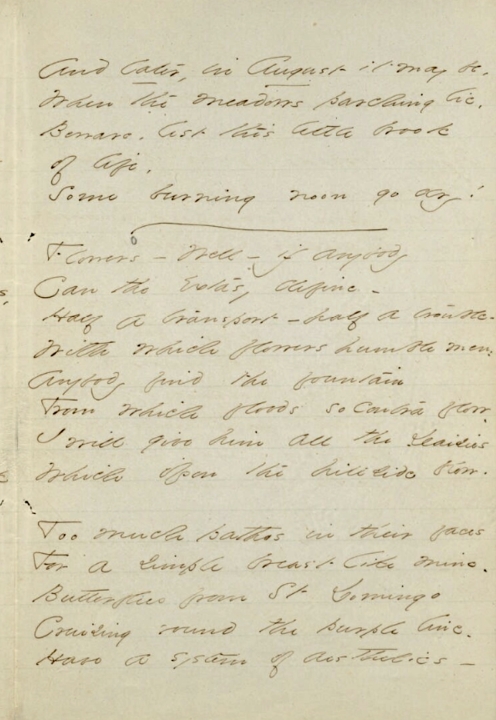 And later, in August it may be,
When the meadows parching lie,
Beware, lest this little brook
of life,
Some burning noon go dry!
Flowers - Well - if anybody
Can the extasy define -
Half a transport - half a trouble -
With which flowers humble men:
Anybody find the fountain
From which floods so contra flow -
I will give him all the Daisies
Which upon the hillside blow.
Too much pathos in their faces
For a simple breast like mine.
Butterflies from St Domingo
Cruising round the purple line -
Have a system of aesthetics -